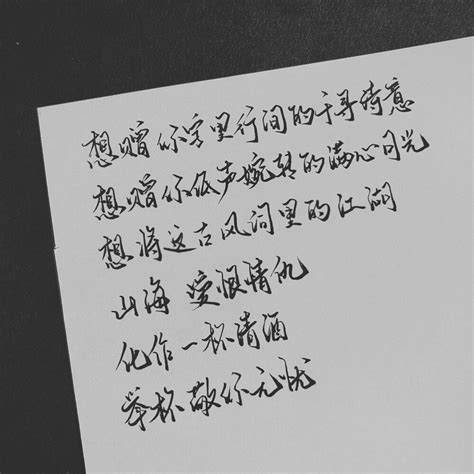 想赠你字里行间的千寻绮意
想赠你低声婉转的满心月光
想将这古风词里的江湖
山海 爱恨情仇
化作一杯清酒
举杯敬你无忧